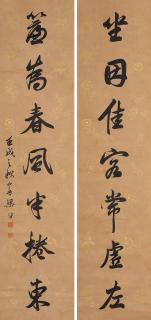 坐因佳客常虛左
簾為春風半捲東
壬戌之秋